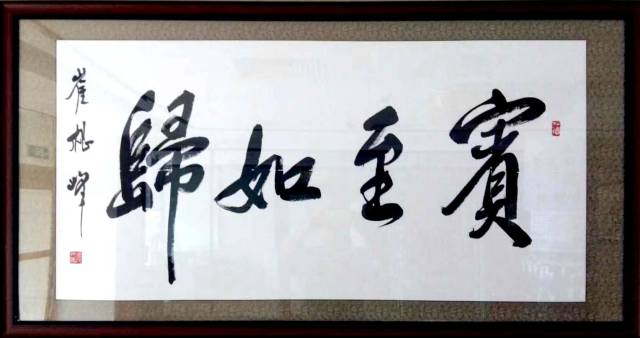 賓至如歸
崔松峰